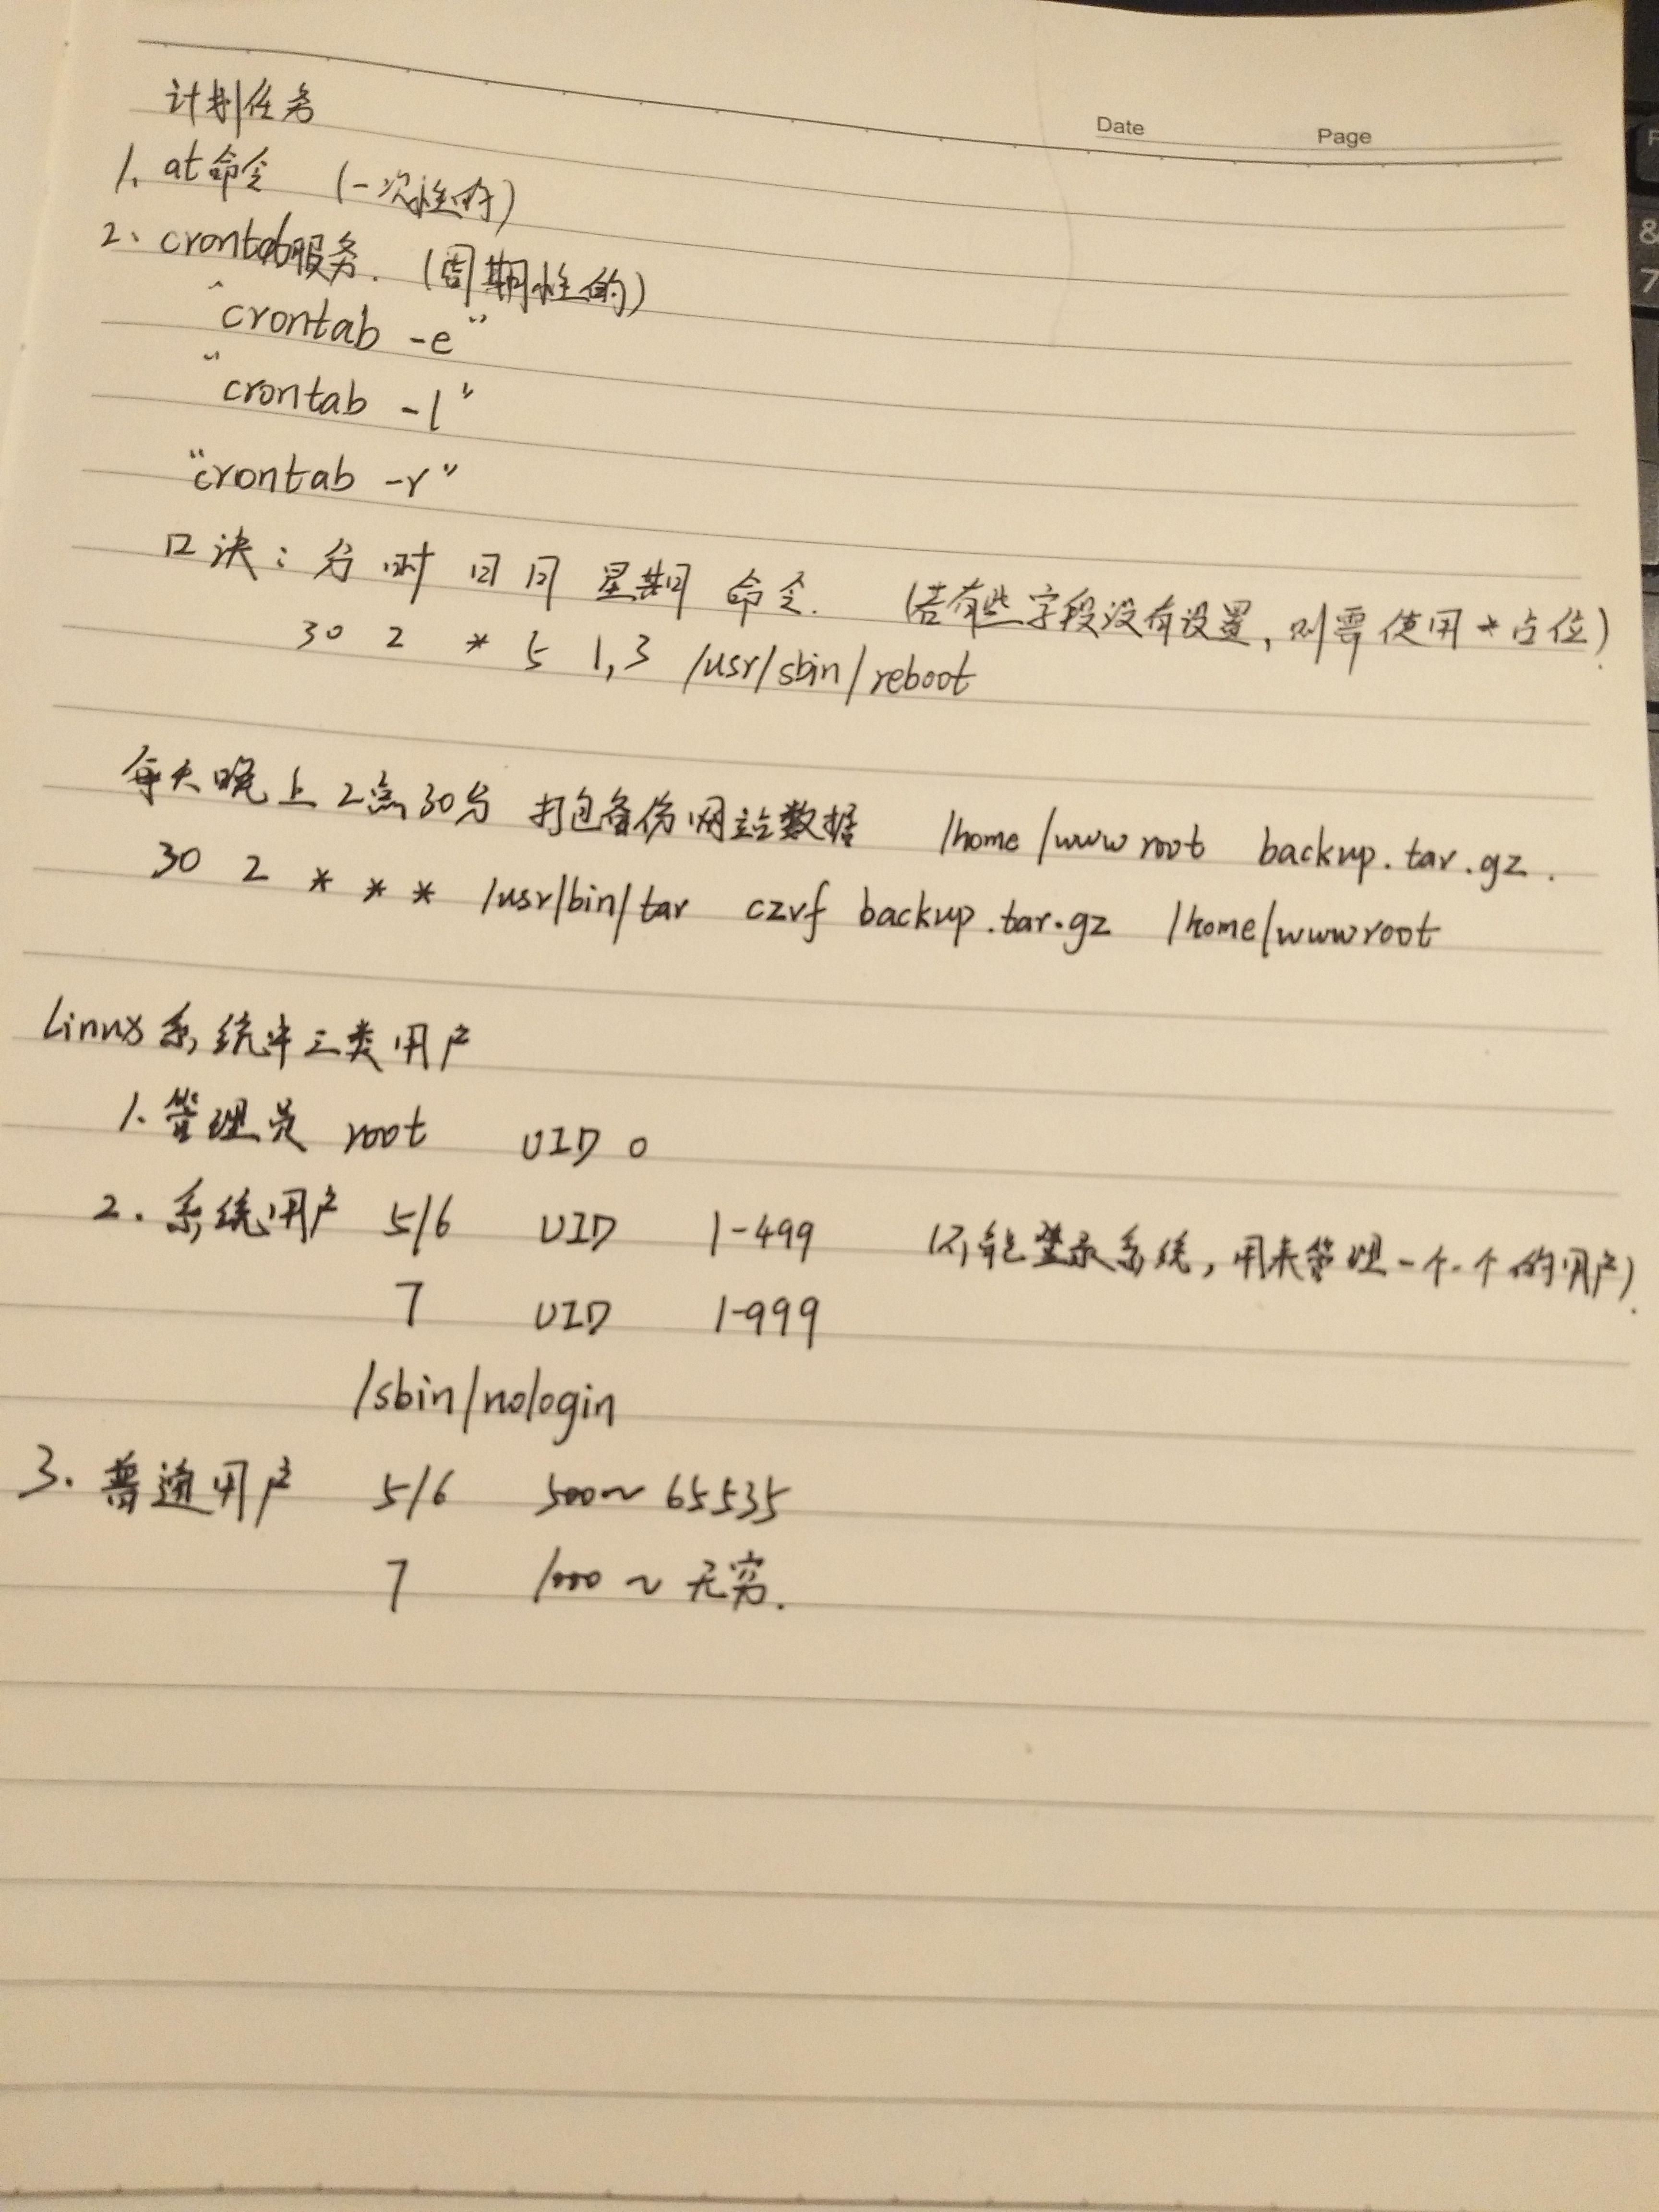 Date Page
计划任务
1. at命令 (一次性的)
2、crontab服务. (周期性的)
"crontab -e"
"crontab -l"
"crontab -r"
口诀:分 时 日 月 星期 命令. (若有些字段没有设置,则需使用*占位)
30 2 * 5 1,3 /usr/sbin/reboot
每天晚上2点30分 打包备份网站数据 /home/wwwroot backup.tar.gz.
30 2 * * * /usr/bin/tar czvf backup.tar.gz /home/wwwroot
Linux系统中三类用户
1. 管理员 root UID 0
2. 系统用户 5/6 UID 1-499 (不能登录系统,用来管理一个个的用户)
7 UID 1-999
/sbin/nologin
3. 普通用户 5/6 500~65535
7 1000~无穷.
&
7